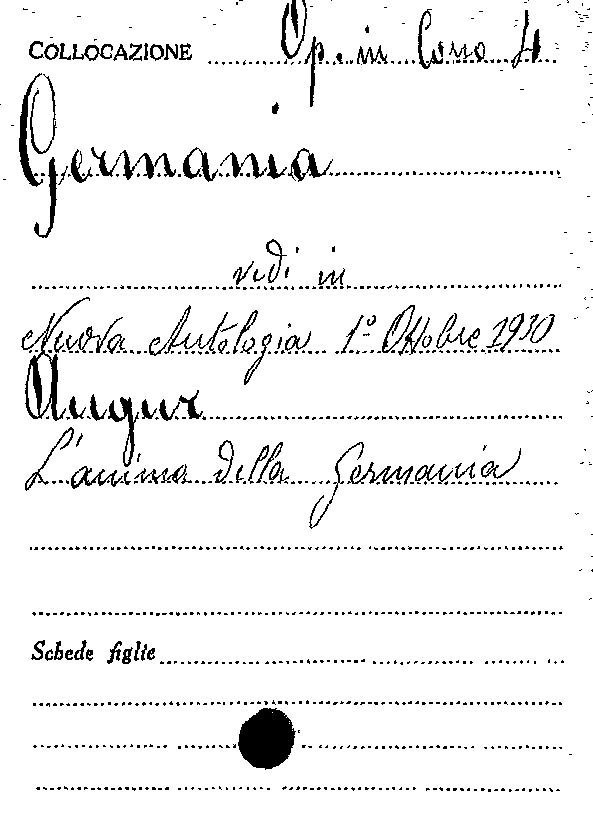 COLLOCAZIONE Op. in Corso 4
Germania
vedi in
Nuova Antologia 1º Ottobre 1930
Augur
L'anima della Germania
Schede figlie